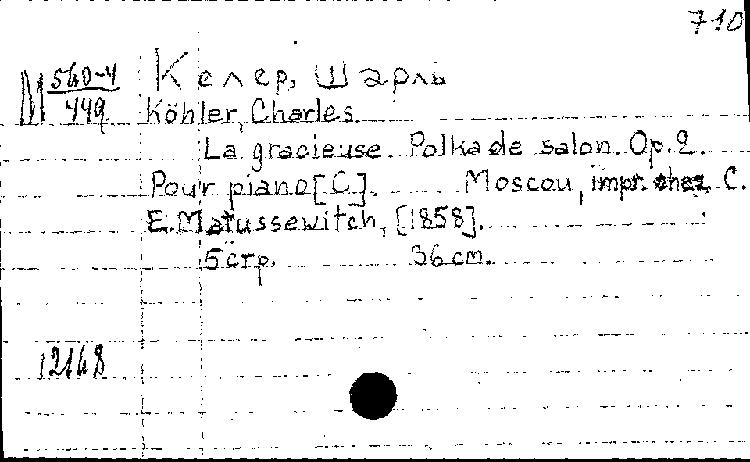 710
М 560-4/449
Келер, Шарль
Köhler, Charles.
La gracieuse. Polka de salon. Op. 2.
Pour piano [C.]. Moscou, impr. chez C.
E. Matussewitch, [1858].
5 стр. 36 cm.
12168